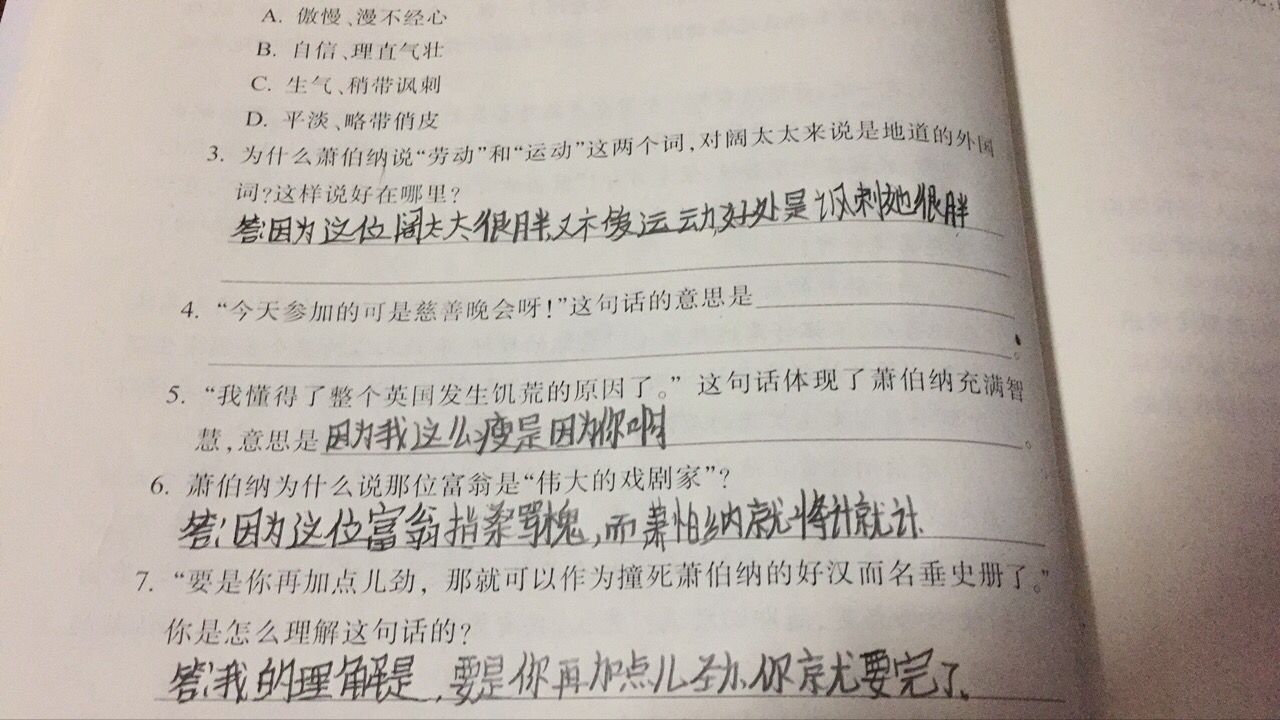 A. 傲慢、漫不经心
B. 自信、理直气壮
C. 生气、稍带讽刺
D. 平淡、略带俏皮
3. 为什么萧伯纳说“劳动”和“运动”这两个词,对阔太太来说是地道的外国
词?这样说好在哪里?
答:因为这位阔太太很胖,又不做运动,好处是讽刺她很胖
4. “今天参加的可是慈善晚会呀!”这句话的意思是
。
5. “我懂得了整个英国发生饥荒的原因了。”这句话体现了萧伯纳充满智
慧,意思是因为我这么瘦是因为你啊。
6. 萧伯纳为什么说那位富翁是“伟大的戏剧家”?
答:因为这位富翁指桑骂槐,而萧怕纳就将计就计.
7. “要是你再加点儿劲,那就可以作为撞死萧伯纳的好汉而名垂史册了。”
你是怎么理解这句话的?
答:我的理解是,要是你再加点儿劲,你就要完了。